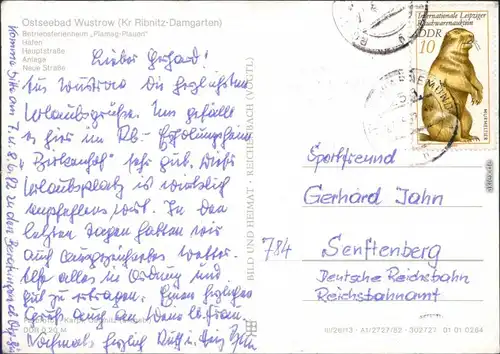 Ostseebad Wustrow (Kr Ribnitz-Damgarten)
Betriebsferienheim „Plamag-Plauen"
Hafen
Hauptstraße
Anlage
Neue Straße
Lieber Gerhard!
Aus Wustrow die herzlichsten
Urlaubsgrüße. Uns gefällt
es hier im Rb.-Erholungsheim
sehr gut. Dieser
Urlaubsplatz ist wirklich
empfehlenswert. In den
letzten Tagen hatten wir
auch ausgezeichnetes Wetter.
alles in Ordnung und
gut zu ertragen. Einen herzlichen
Gruß auch an Deine lb. Frau.
Nochmals herzlich
Komme bitte am 7. u. 8.6.82 zu den
DDR 0,20 M
BILD UND HEIMAT · REICHENBACH (VOGTL)
Internationale Leipziger
Rauchwarenauktion
DDR
10
MURMELTIER
Sportfreund
Gerhard Jahn
784 Senftenberg
Deutsche Reichsbahn
Reichsbahnamt
III/26/13 · A1/2727/82 · 302727 01 01 0264